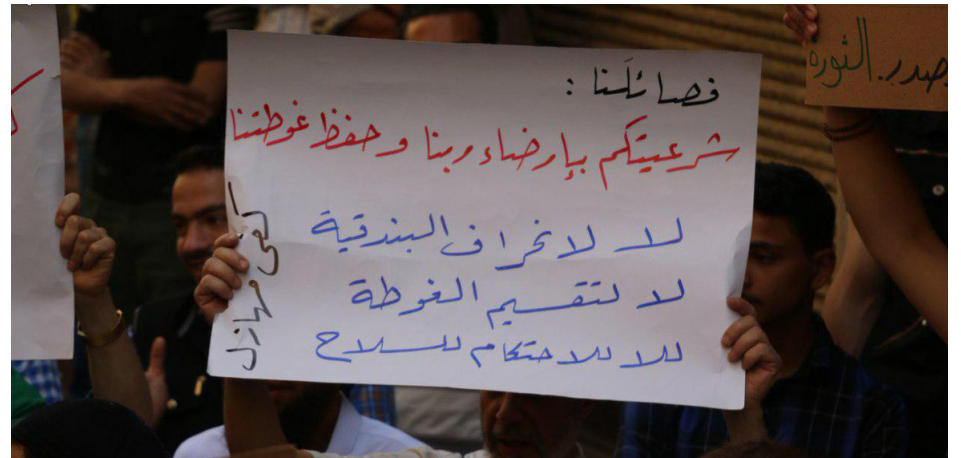 فصائلَنا :
شرعيتكم بإرضاء ربنا وحفظ غوطتنا
لا لانحراف البندقية
لا لتقسيم الغوطة
لا للاحتكام للسلاح
كفى مهازل
صدر. الثورة